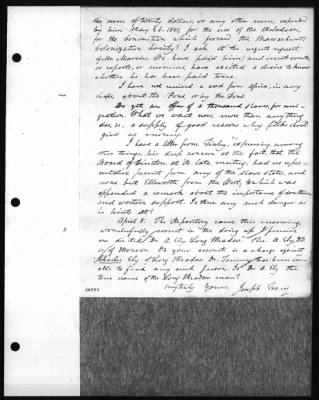 the sum of twenty dollars, or any other sum, expended
by him May 26. 1841, for the use of the Melodeon,
for the Convention which formed the Massachusetts
Colonization Society? I ask at the urgent request
of Mr. Marvin. We have paid him; and recent events,
or reports, or surmises have excited a desire to know
whether he has been paid twice.
I have not received a word from Africa, in any
shape, about the Fund or by the Fund.
Do get an offer of a thousand slaves, for emi-
gration. What we want now, more than any thing
else, is, a supply of good reasons why folks should
give us money.
I have a letter from Finley, expressing, among
other things, his deep concern at the fact, that the
Board of Directors, at its late meeting, had no repre-
sentative present from any of the slave states, and
none but Ellsworth from the West; to which was
appended a remark about the importance of southern
and western support. Is there any such danger as
he hints at?
April 8. The Repository came this morning,
wonderfully correct in the doing up. I perceive
one directed Dr. A. Ely, Long Meadow. Rev. A. Ely, DD.
is of Monson. On your receipts is a charge against
Ely of Long Meadow. Dr. Tenney has been un-
able to find any such person. Is Dr. A Ely the
true name of the Long Meadow man?
Very truly Yours, Joseph Tracy